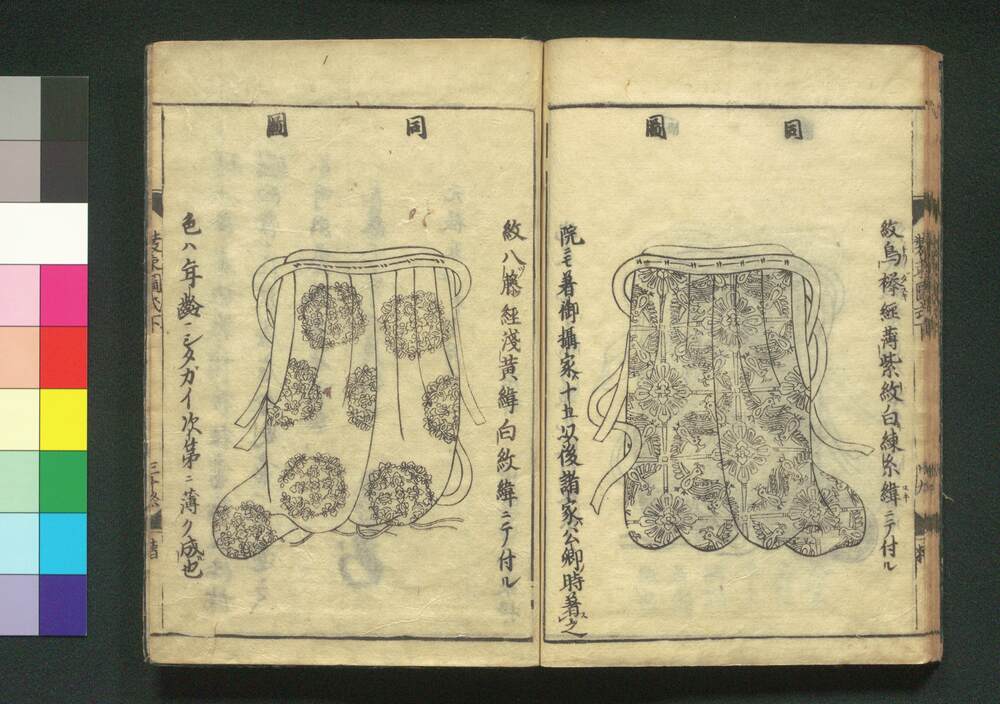 同圖
紋鳥襷経薄紫紋白練糸緯ニテ付ル
院ニモ着御攝家十五以後諸家公卿時著之
同圖
紋八藤経浅黄緯白紋緯ニテ付ル
色ハ年齢ニシタガイ次第ニ薄ク成也
装束圖式下